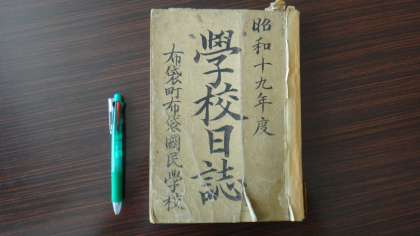 昭和十九年度
學校日誌
布袋町布袋國民學校